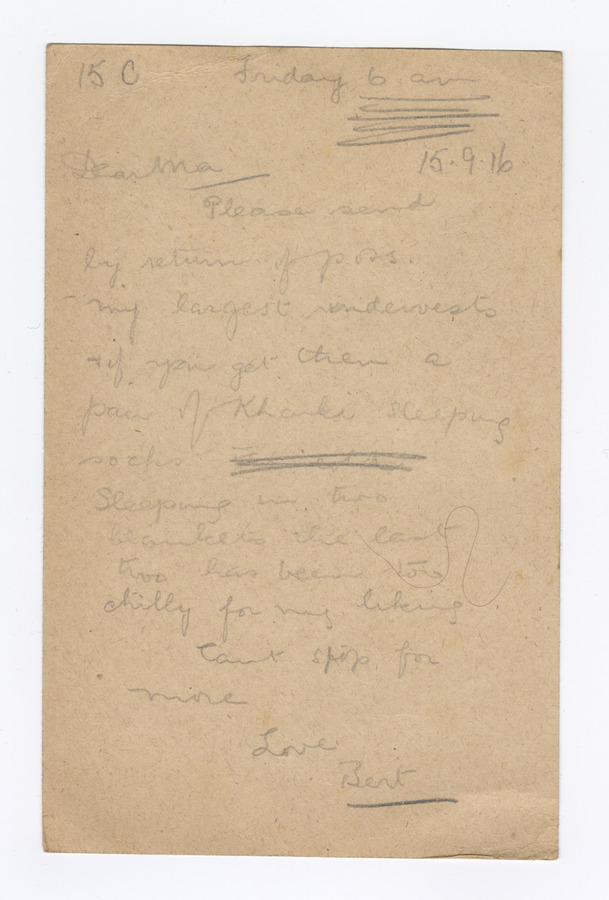 15 C Friday 6 am
Dear Ma 15.9.16
Please send
by return of poss.
my largest undervests
+ if you get them a
pair of Kharki sleeping
socks
Sleeping in two
blankets the last
two has been too
chilly for my liking
Cant stop for
more
Love
Bert